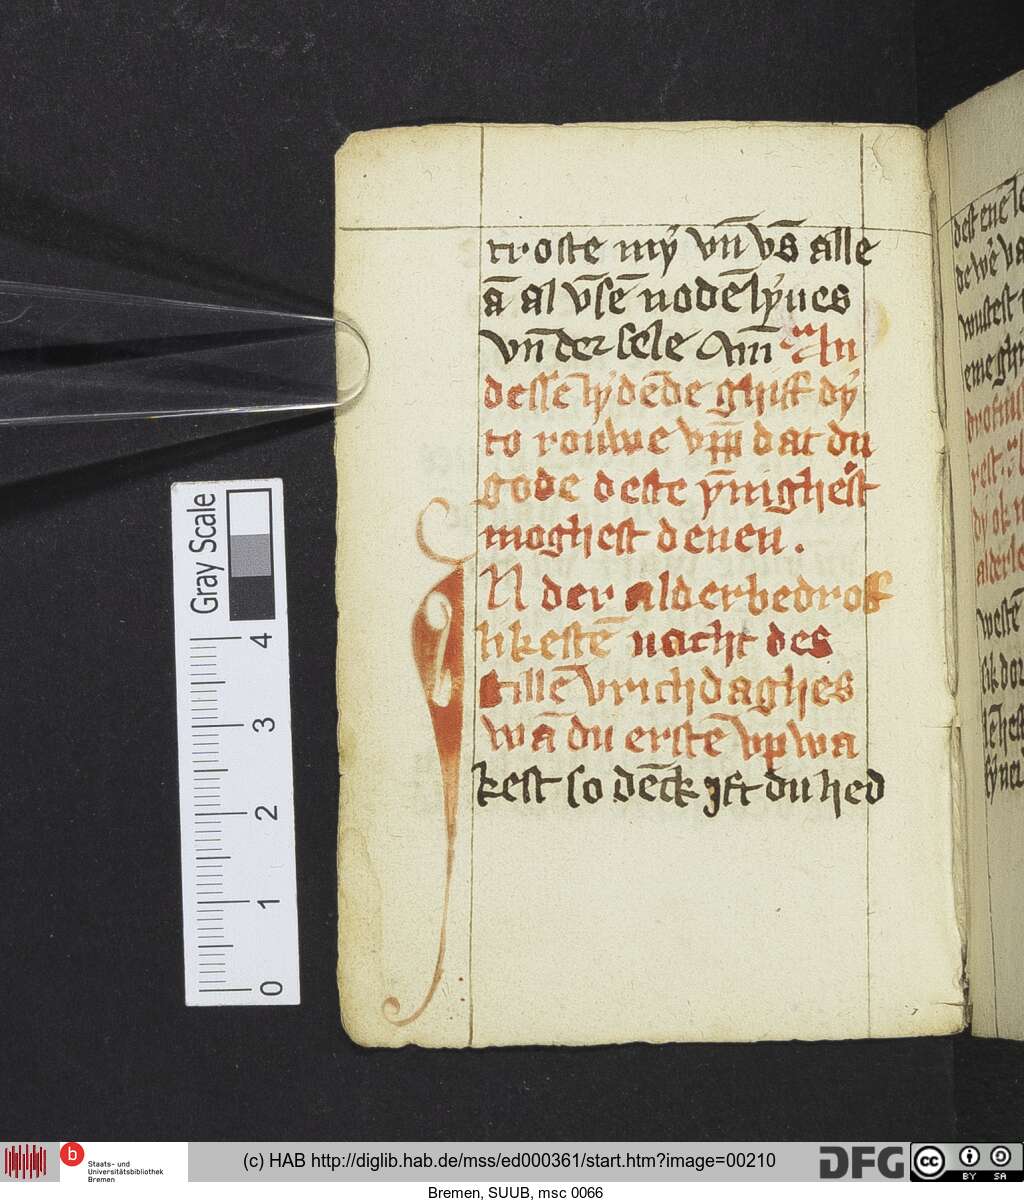 troste mẏ vn̄ vs̄ alle
ā al vs̄ē nodē lẏues
vn̄ der sele Am̄ An
dessē lẏdēde ghiff dẏ
to rouwe vpp dat du
gode deste ẏnighest
moghest denen.
IN der alderbedroff
likestē nacht des
stillē vrichdaghes
wā du erstē vpwa
kest so dēck ift du hed
dest enē
de wē va
wustest
eme ghi
drofnis
rest.
dẏ ok
alderle
westē
lik
Gray Scale
4
3
2
1
0
b
Staats- und
Universitätsbibliothek
Bremen
(c) HAB http://diglib.hab.de/mss/ed000361/start.htm?image=00210
DFG
cc
BY SA
Bremen, SUUB, msc 0066